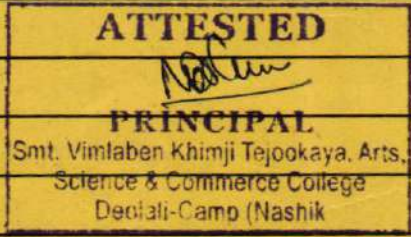 ATTESTED
PRINCIPAL
Smt. Vimlaben Khimji Tejookaya, Arts,
Science & Commerce College
Deolali-Camp (Nashik